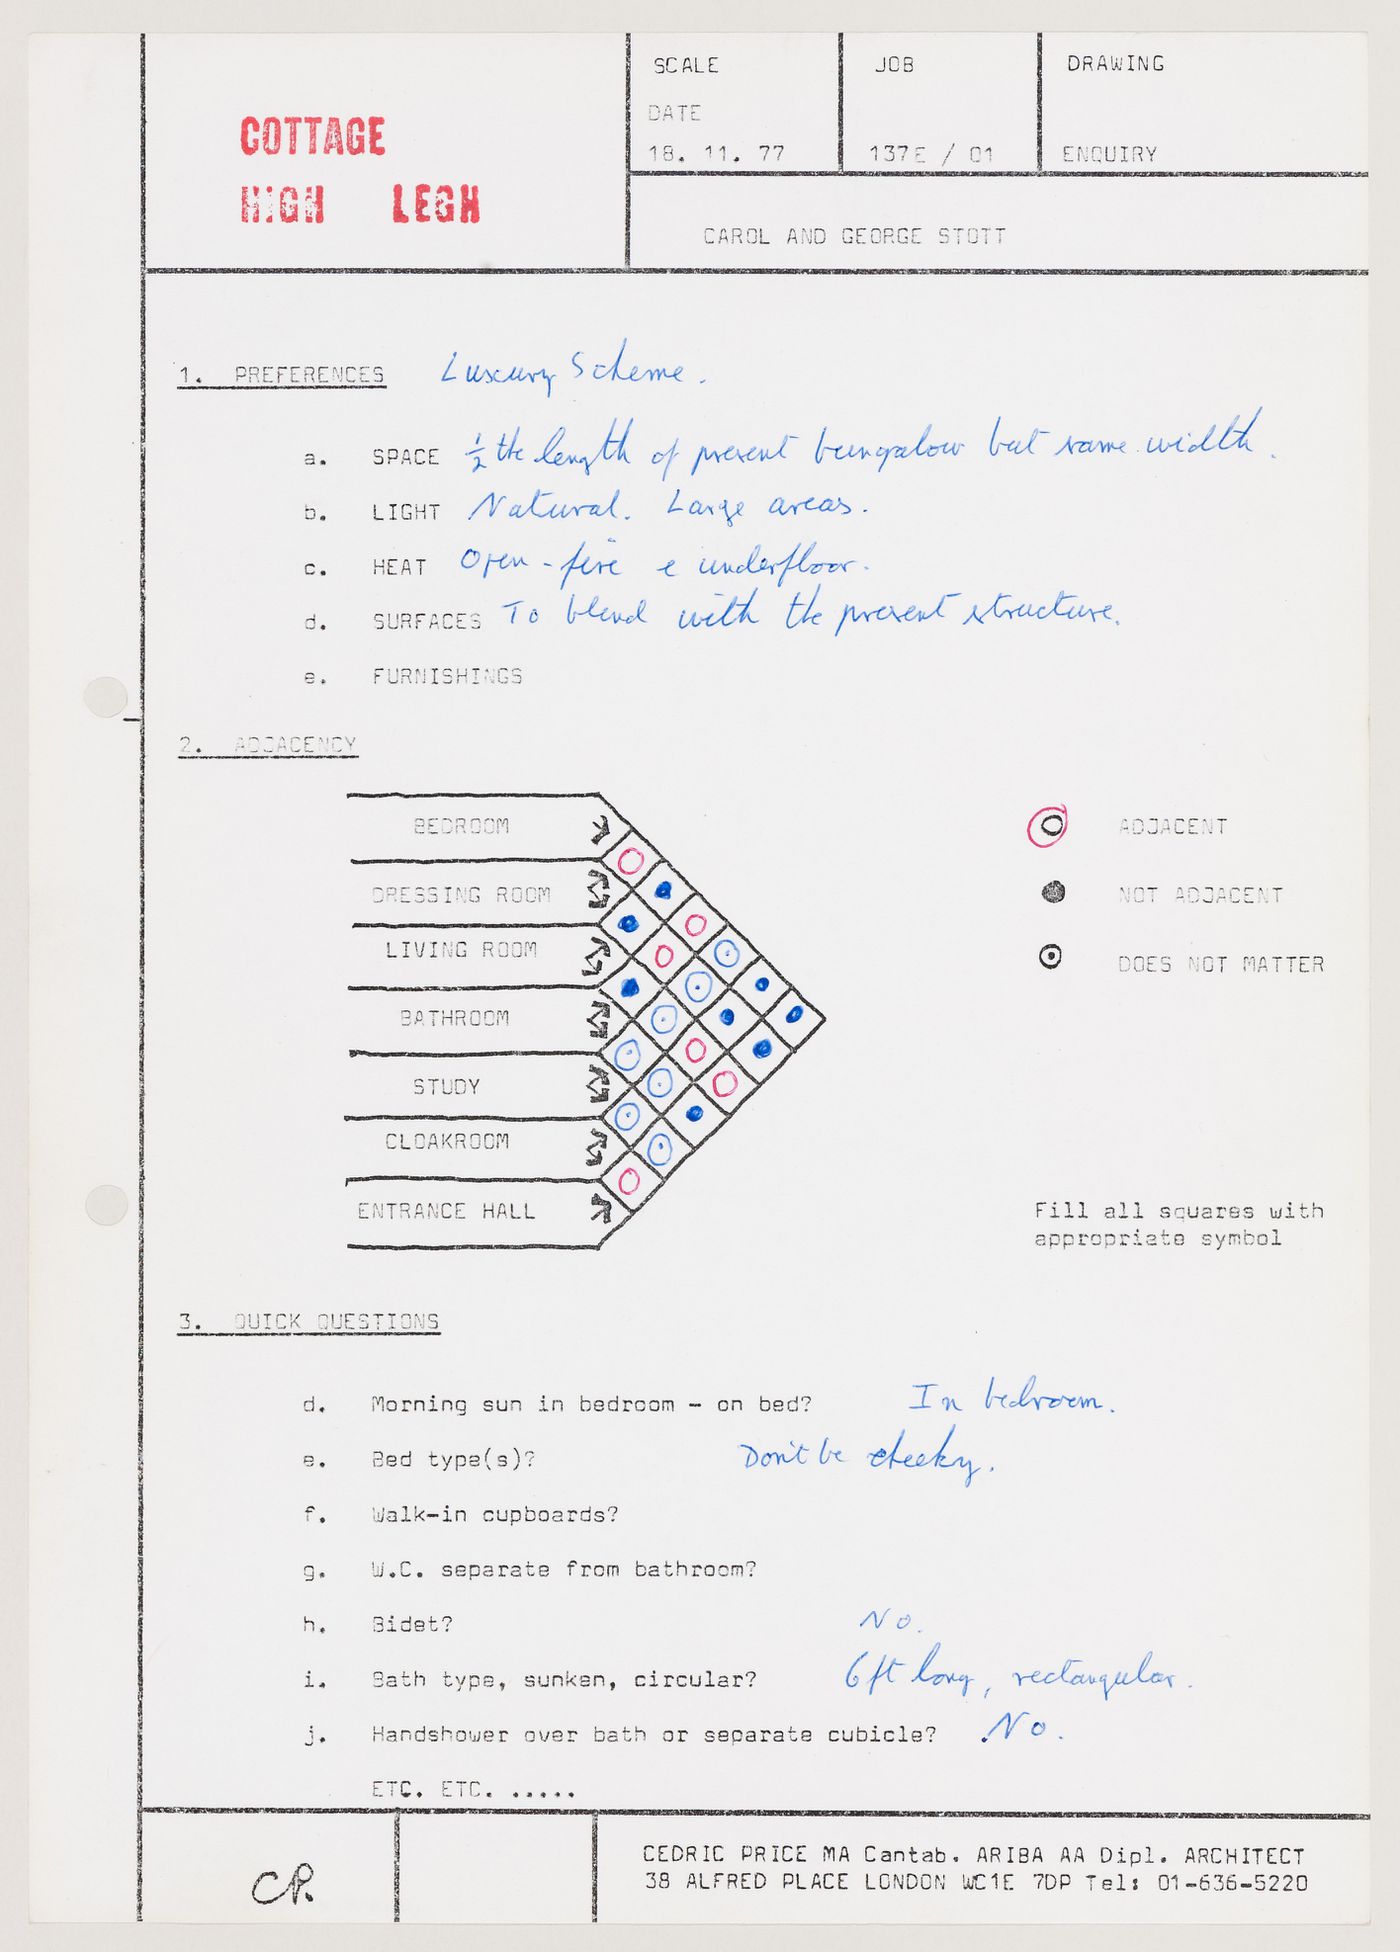 COTTAGE
HIGH LEGH
SCALE
DATE
18. 11. 77
JOB
137E / 01
DRAWING
ENQUIRY
CAROL AND GEORGE STOTT
1. PREFERENCES Luxury Scheme.
a. SPACE ½ the length of present bungalow but same width.
b. LIGHT Natural. Large areas.
c. HEAT Open-fire e underfloor.
d. SURFACES To blend with the present structure.
e. FURNISHINGS
2. ADJACENCY
BEDROOM
DRESSING ROOM
LIVING ROOM
BATHROOM
STUDY
CLOAKROOM
ENTRANCE HALL
ADJACENT
NOT ADJACENT
DOES NOT MATTER
Fill all squares with
appropriate symbol
3. QUICK QUESTIONS
d. Morning sun in bedroom - on bed? In bedroom.
e. Bed type(s)? Don't be cheeky.
f. Walk-in cupboards?
g. W.C. separate from bathroom?
h. Bidet? No.
i. Bath type, sunken, circular? 6ft long, rectangular.
j. Handshower over bath or separate cubicle? No.
ETC. ETC. .....
CP.
CEDRIC PRICE MA Cantab. ARIBA AA Dipl. ARCHITECT
38 ALFRED PLACE LONDON WC1E 7DP Tel: 01-636-5220